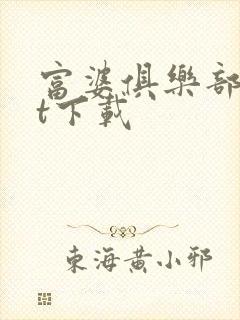 富婆俱樂部
t下載
東海黃小邪